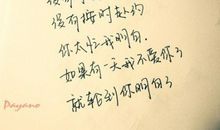 没有按时赴约
你太忙我明白
如果有一天我不要你了
就轮到你明白了
Payano